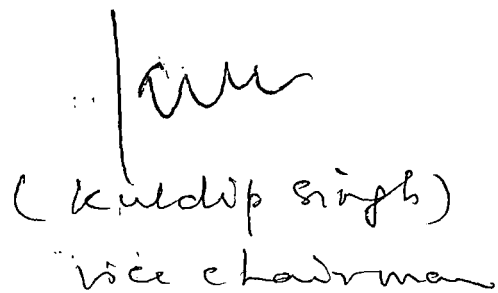 (Kuldip Singh)
Vice Chairman